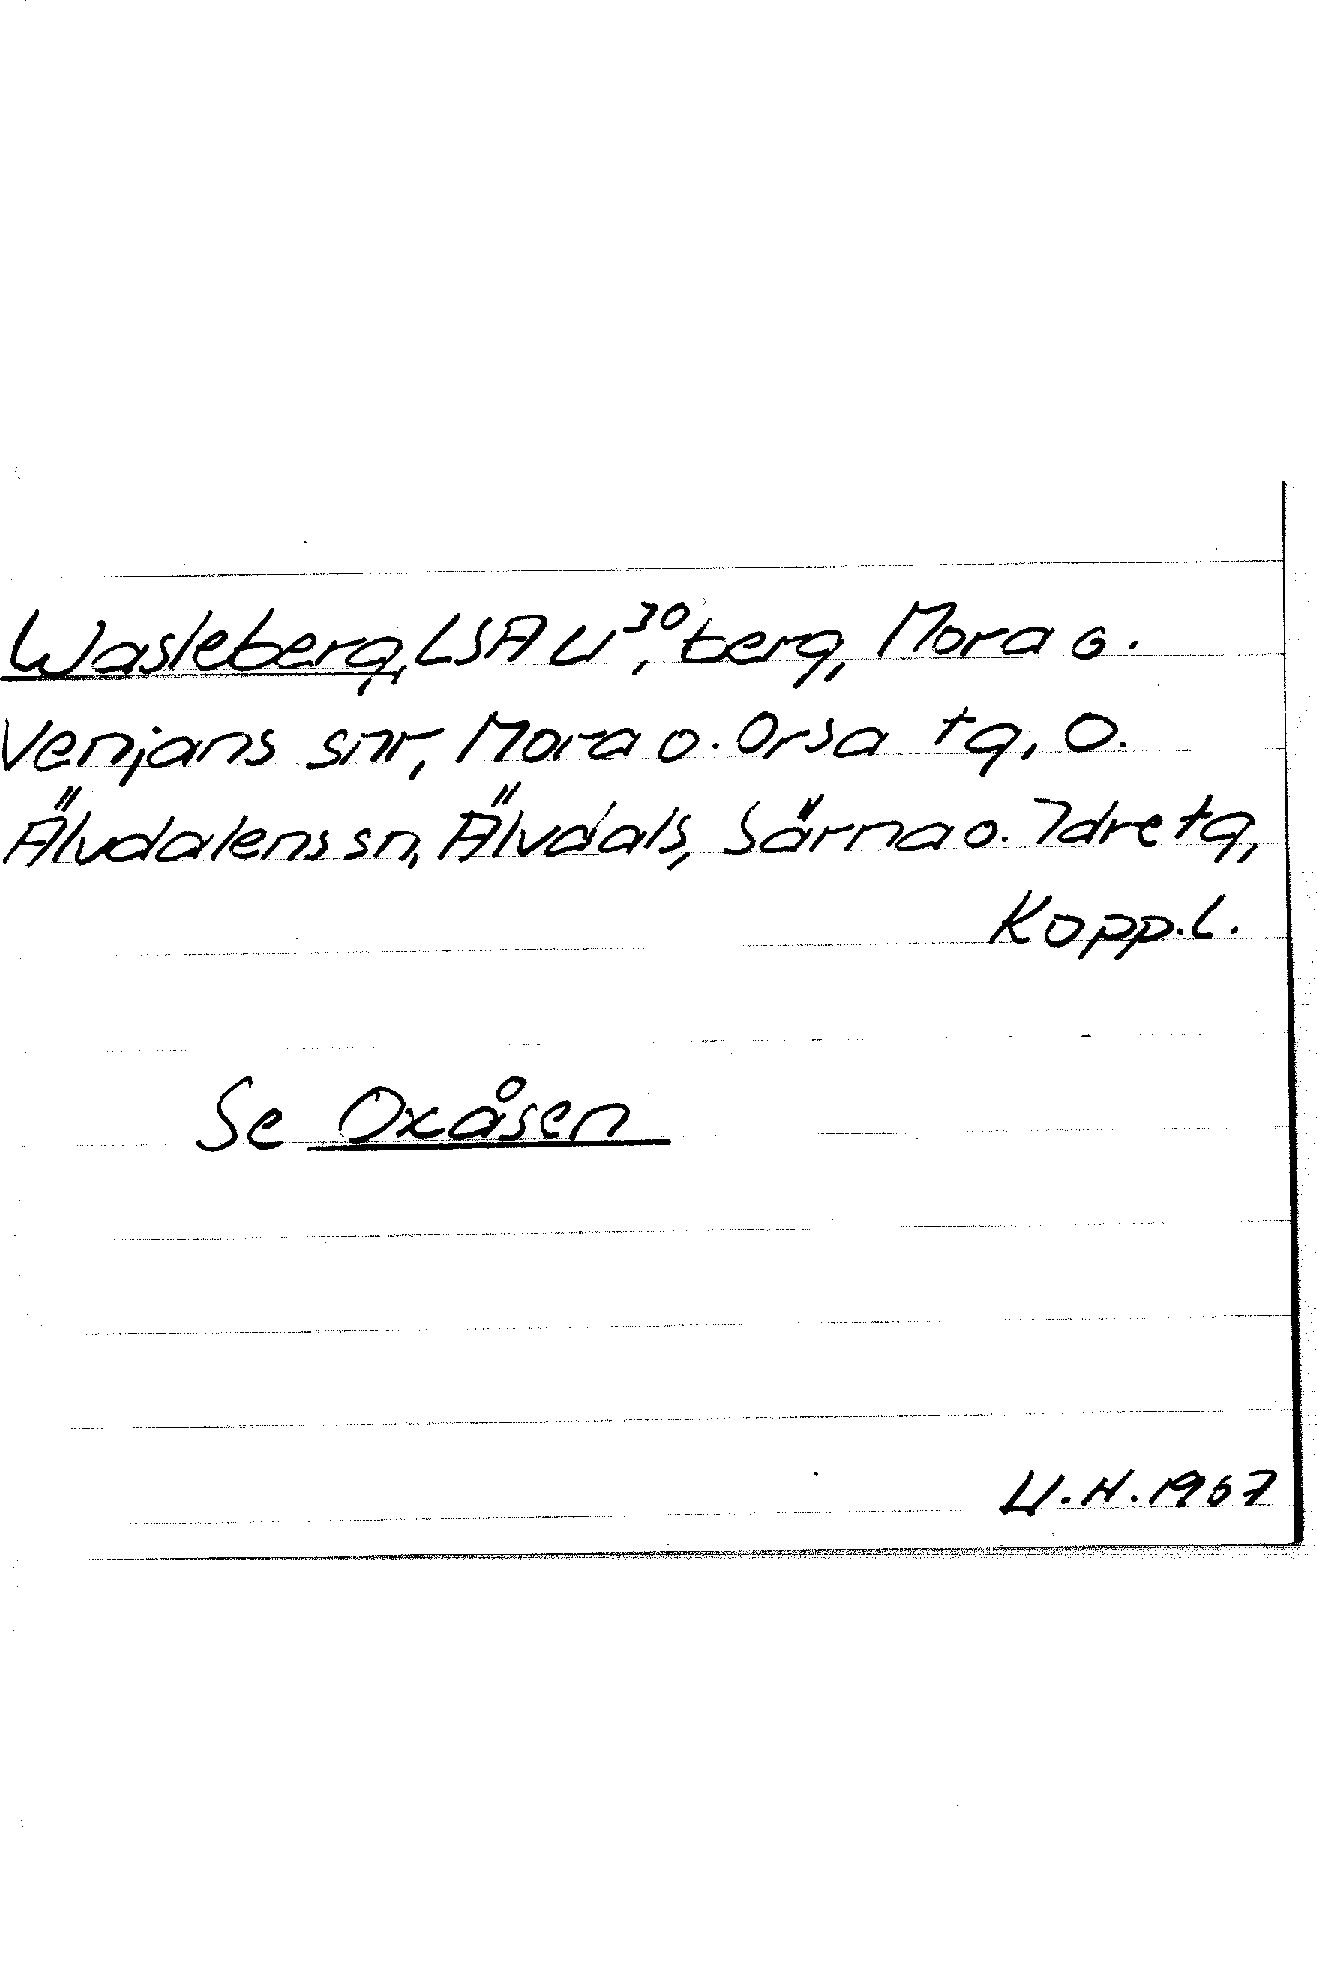 Wasleberg, LSA U³⁰, berg, Mora o.
Venjans snr, Mora o. Orsa tg, o.
Älvdalens sn, Älvdals, Särna o. Idre tg,
Kopp.l.
Se Oxåsen
U.H. 1967